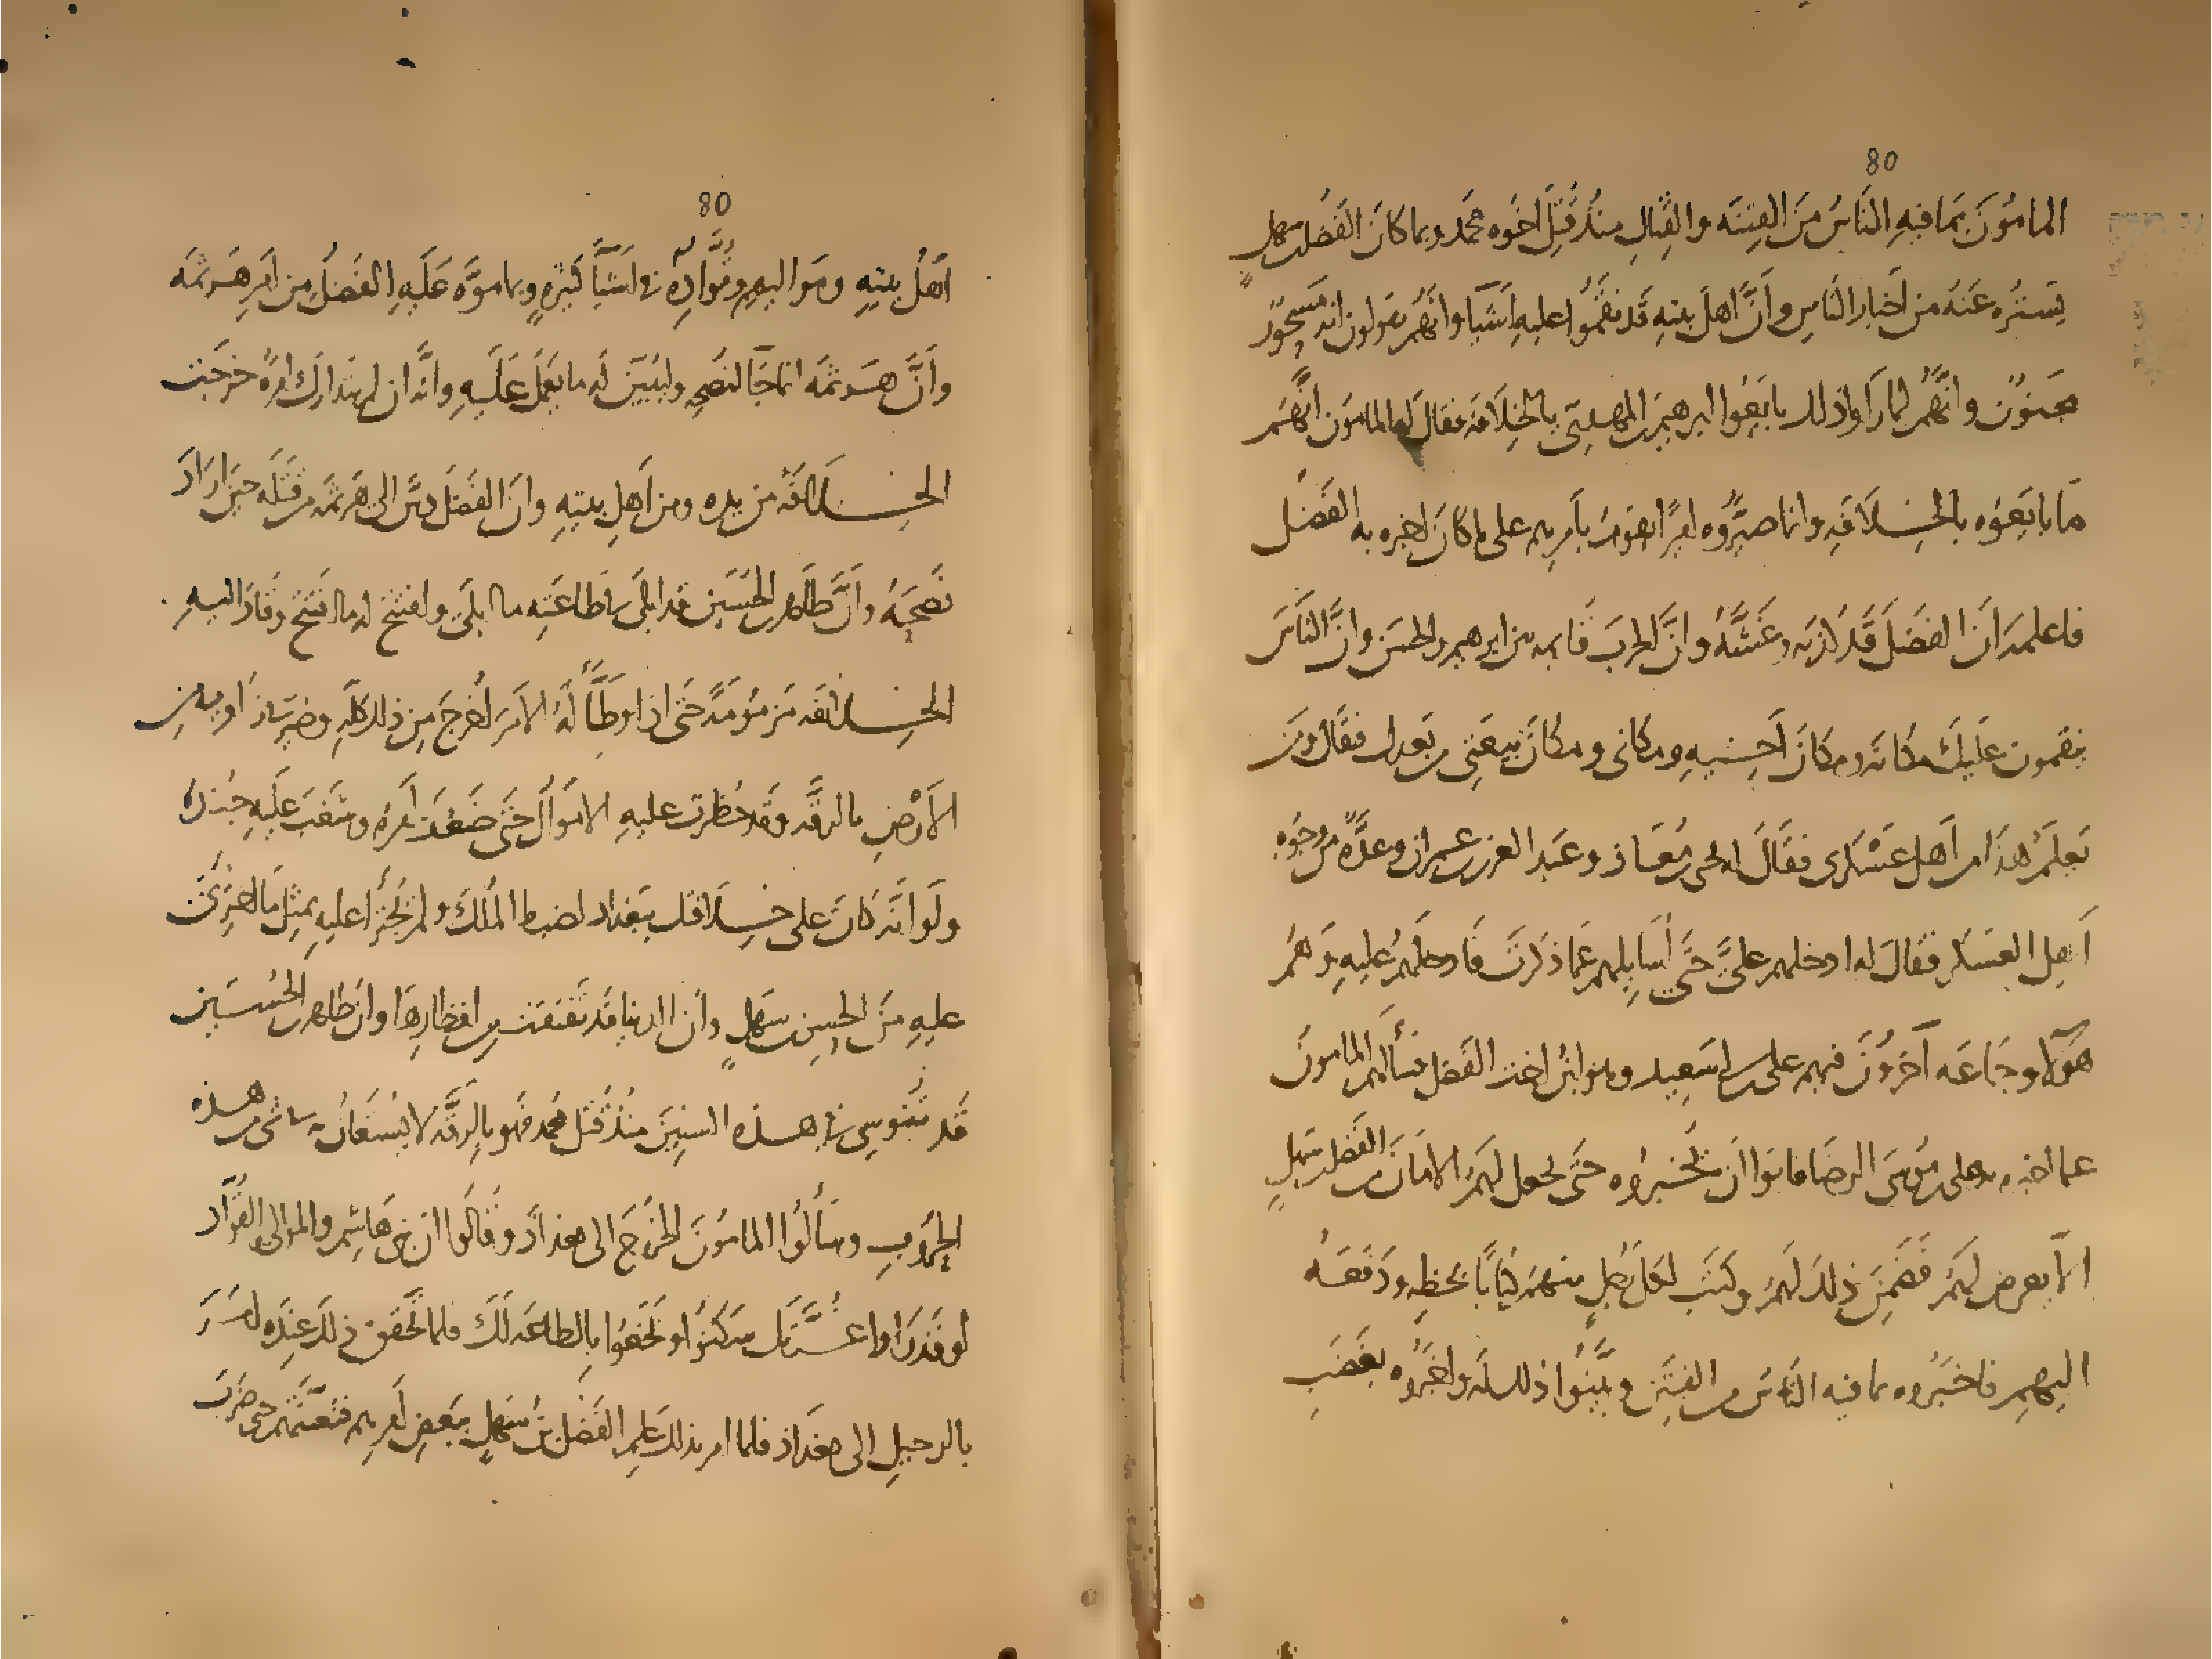 80
المامُونَ بمَا فيهِ النَّاسُ مِنَ الفِتنَه والقِتالِ منذُ قُتِلَ اخُوه محمَّد وبما كانَ الفَضلُ بن سهلٍ
يَستُره عَنهُ من اَخبار النَّاسِ واَنَّ اهلَ بيتِهِ قَد نَقَمُوا عليهِ اَشيَآ وانَّهُم يقولون انه مَسحُورٌ
مجنونٌ وانَّهُم لما رَاَوا ذلك بايَعُوا ابرهيم بن المهدىّ بالخِلافَه فقالَ لهُ المامون انَّهُم
مَا بايَعُوه بالخِلَافَهِ وانما صيَّرُوه اميرًا يقومُ بأَمرِهم على ما كانَ اخبره به الفَضلُ
فاعلمَه اَنَّ الفضلَ قَد كَذَبَه وغَشَّهُ وانَّ الحربَ قَايمه بين ابرهيم والحسَن وانَّ النَّاسَ
ينقمون عَليكَ مكانَه ومكانَ اَخيهِ ومكانى ومكانَ بيعَتِى من بَعدِك فقالَ ومَن
يَعلَمُ هذَا من اَهل عَسْكرى فقَالَ له يحيى بن مُعَاذ وعَبد العزيز بن عمران وعدَّهٌ من وجُوهِ
اَهلِ العَسكَر فقالَ له ادخلهم علىَّ حتَّى اُسايِلهم عَمَّا ذكرتَ فَادخلَهُم عليهِ وَهُم
هَؤلآ وجمَاعَه آخَرُونَ فيهم على بن ابى سَعِيد وهو ابنُ اخت الفَضل فسَأَلهم المامونُ
عما اخبره به على بن مُوسَى الرضَا فابوا اَن يُخبِروه حتَّى يجعل لهُمُ الامَانَ من الفَضل بن سَهلٍ
الّا يعرض لهُم فَضَمِنَ ذلكَ لهُم وكتَبَ لكل رَجُلٍ منهُم كِتابًا بخطِهِ ودَفَعَهُ
اليهِم فاخبَرُوه بما فيه النَّاسُ من الفِتَنِ وبيَّنُوا ذلك لَه واخبَرُوه بغَضَبِ
80
اَهلِ بيتِهِ ومَواليهِم وقُوَّادِه فى اَشيَآ كثيرهٍ وبما موَّه عَلَيهِ الفَضلُ من اَمرِ هَرثمَه
واَنَّ هَرثمَه انما جَآ لنُصحِه وليُبَيّن له ما يَعملُ عَلَيهِ وانَّه ان لم يَتدارَك اَمرهُ خرجَت
الخِلَافَهُ من يدِه ومن اَهلِ بيتِهِ وانَ الفَضلَ دسَّ الى هَرثمَه من قتلَه حين ارَادَ
نُصحَهُ واَنَّ طَاهر بن الحُسَين قد ابلَى فى طاعَتِه ما ابلَى وافتتح له ما افتتح وقَادَ اليهِ
الخِلافَه مَزمومَهً حَتى اذا وطَّأَ لَهُ الاَمرَ اُخرِجَ مِن ذلك كلِّهِ وصُيّرَ فى زَاويهٍ مِن
الاَرْضِ بالرقَّه وقَد حُظرت عليهِ الاموَال حَتى ضَعُفَ اَمرهُ وشَغَبَ عَلَيهِ جُندُهُ
ولَو انَّه كانَ على خِلافتك ببغداد لضبط المُلكَ ولم يُجتَرأ عليهِ بمِثلِ مَا اجتُرِئَ
عليهِ مِنَ الحسنِ بن سَهلٍ وان الدنيا قَد تَفَتقت من اقطارِهَا وان طاهر بن الحُسَين
قَد تُنُوسِى فى هَذه السِنينَ منذُ قُتلَ محمد فَهو بالرقَّه لا يُستعَانُ به فى شىٍ من هذه
الحُرُوبِ وسَأَلُوا المامُونَ الخرُوجَ الى بغدادَ وقَالُوا ان بنى هَاشِم والموالى والقُوَّاد
لو قَد رَاوا عسكرك سَكَنُوا وبَخَعُوا بالطاعَه لَكَ فلما تَحَقق ذلكَ عِندَه امرَ
بالرحيلِ الى بغدَاذ فلما امر بذلك عَلم الفَضل بنُ سَهلٍ ببَعضِ اَمرِهم فتَعنَّتهم حتى ضرَبَ